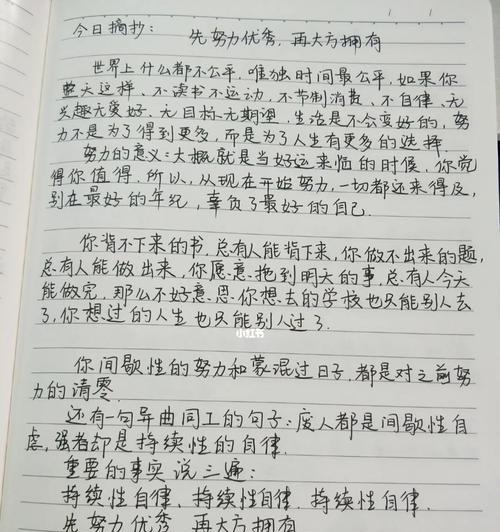 今日摘抄:
先努力优秀,再大方拥有
世界上什么都不公平,唯独时间最公平,如果你
整天这样、不读书不运动,不节制消费、不自律、无
兴趣无爱好、无目标、无期望,生活是不会变好的,努
力不是为了得到更多,而是为了人生有更多的选择.
努力的意义:大概就是当好运来临的时候,你觉
得你值得.所以,从现在开始努力,一切都还来得及,
别在最好的年纪,辜负了最好的自己.
你背不下来的书,总有人能背下来,你做不出来的题,
总有人能做出来,你愿意拖到明天的事,总有人今天
能做完,那么不好意思,你想去的学校也只能别人去
了,你想过的人生也只能别人过了.
小红书
你间歇性的努力和蒙混过日子,都是对之前努
力的清零.
还有一句异曲同工的句子:废人都是间歇性自
虐,强者却是持续性的自律.
重要的事实说三遍:
持续性自律、持续性自律.持续性自律.
先努力优秀,再大方拥有